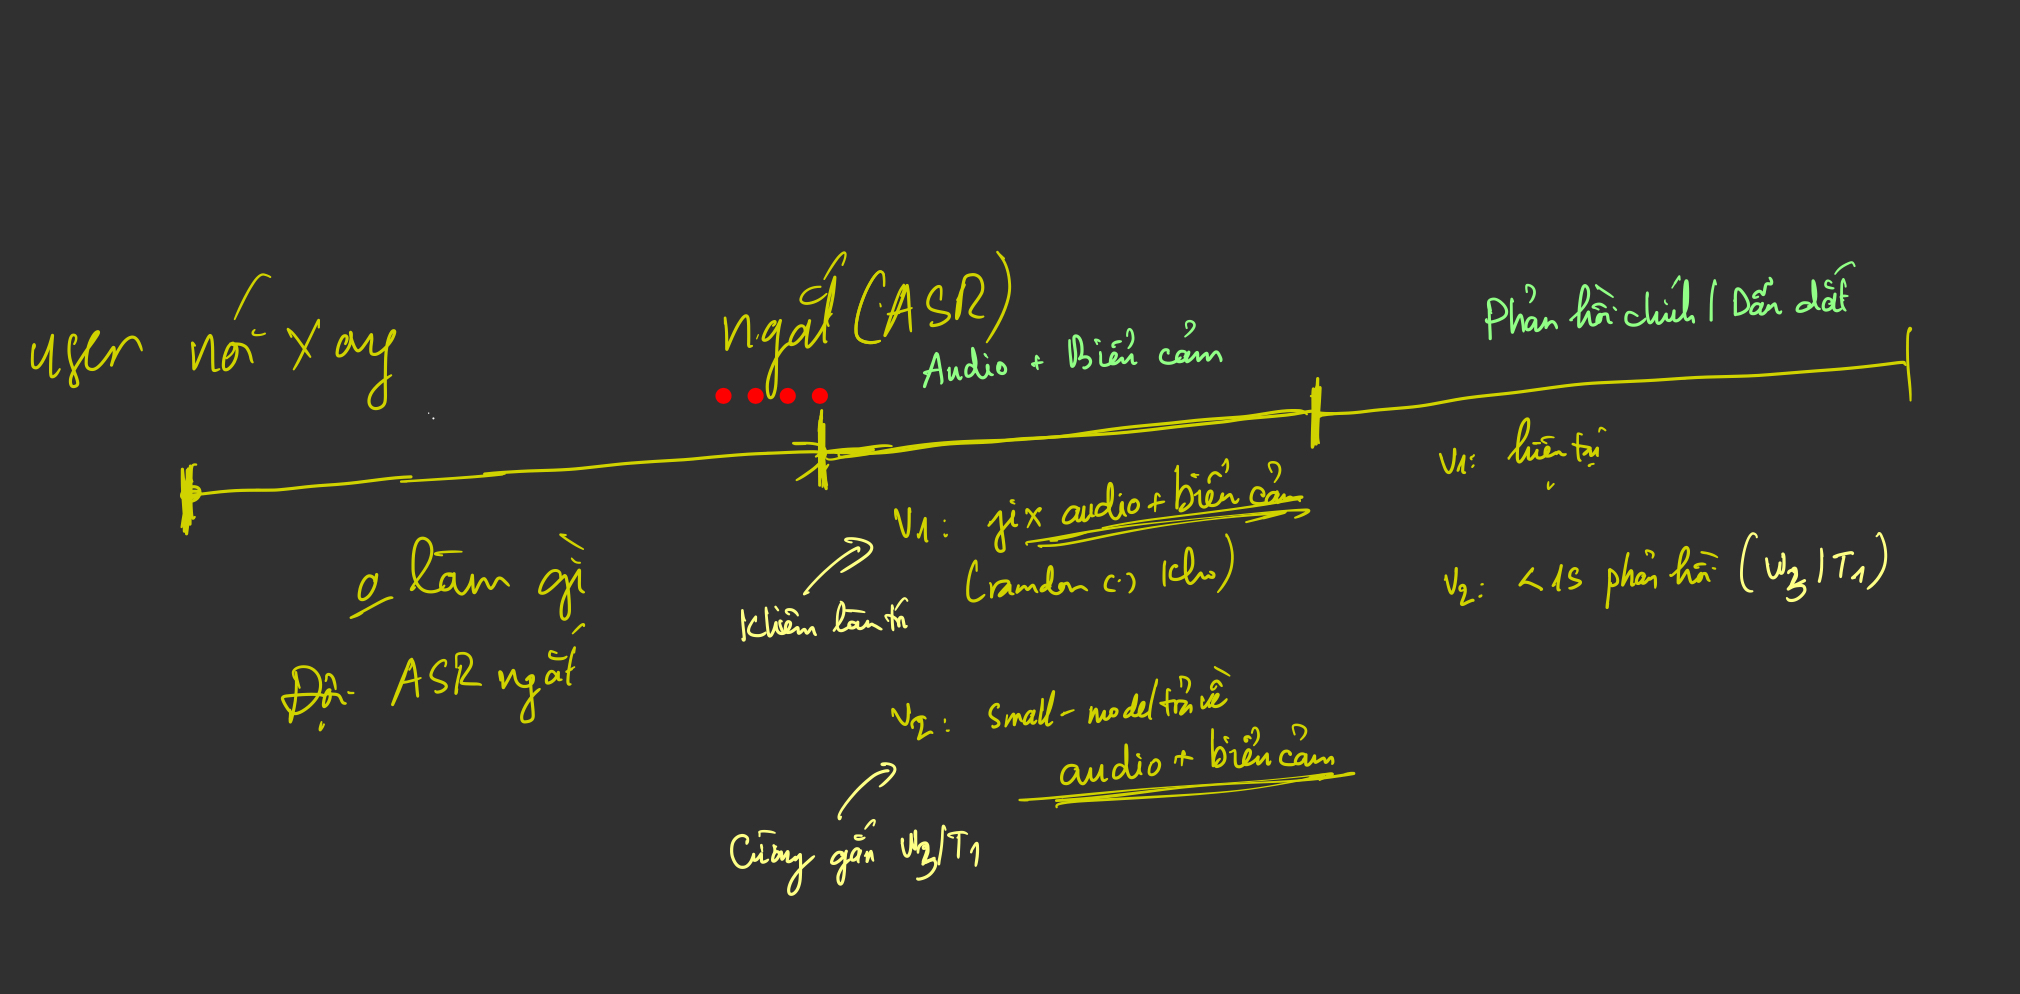 user nói xong
ngắt (ASR)
Audio + Biểu cảm
Phản hồi chính / Dẫn dắt
ko làm gì
Đợi ASR ngắt
V1: fix audio + biểu cảm
(ramdon có kho)
Khiêm làm
V2: small-model trả về
audio + biểu cảm
Cường gắn W3/T1
V1: hiện tại
V2: <1s phản hồi (W3/T1)